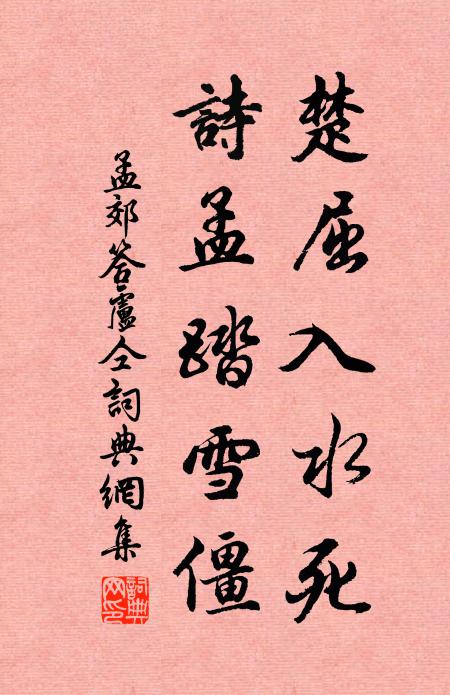 楚屈入水死
詩孟踏雪僵
孟郊答盧仝詞典網集
詞典
网印